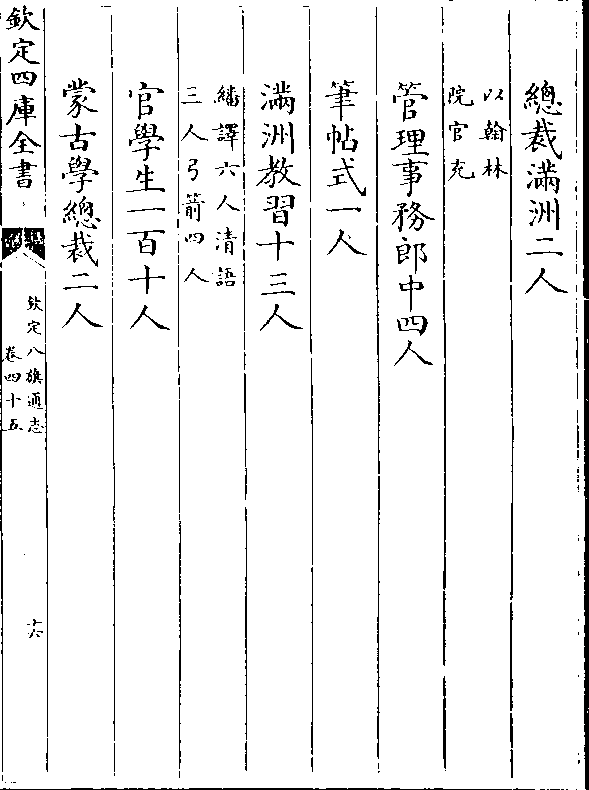 總裁滿洲二人
以翰林
院官充
管理事務郎中四人
筆帖式一人
滿洲教習十三人
繙譯六人清語
三人弓箭四人
官學生一百十人
蒙古學總裁二人
欽定四庫全書
欽定八旗通志
卷四十五
十六